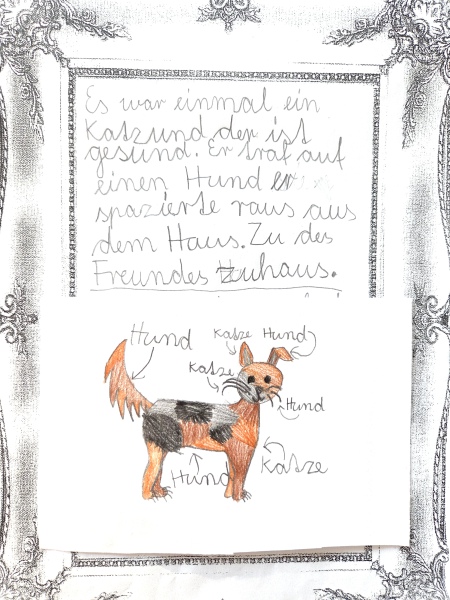 Es war einmal ein
Katzund der ist
gesund. Er traf auf
einen Hund er
spazierte raus aus
dem Haus. Zu des
Freundes Zuhaus.
Hund
Katze Hund
Katze
Hund
Katze
Hund